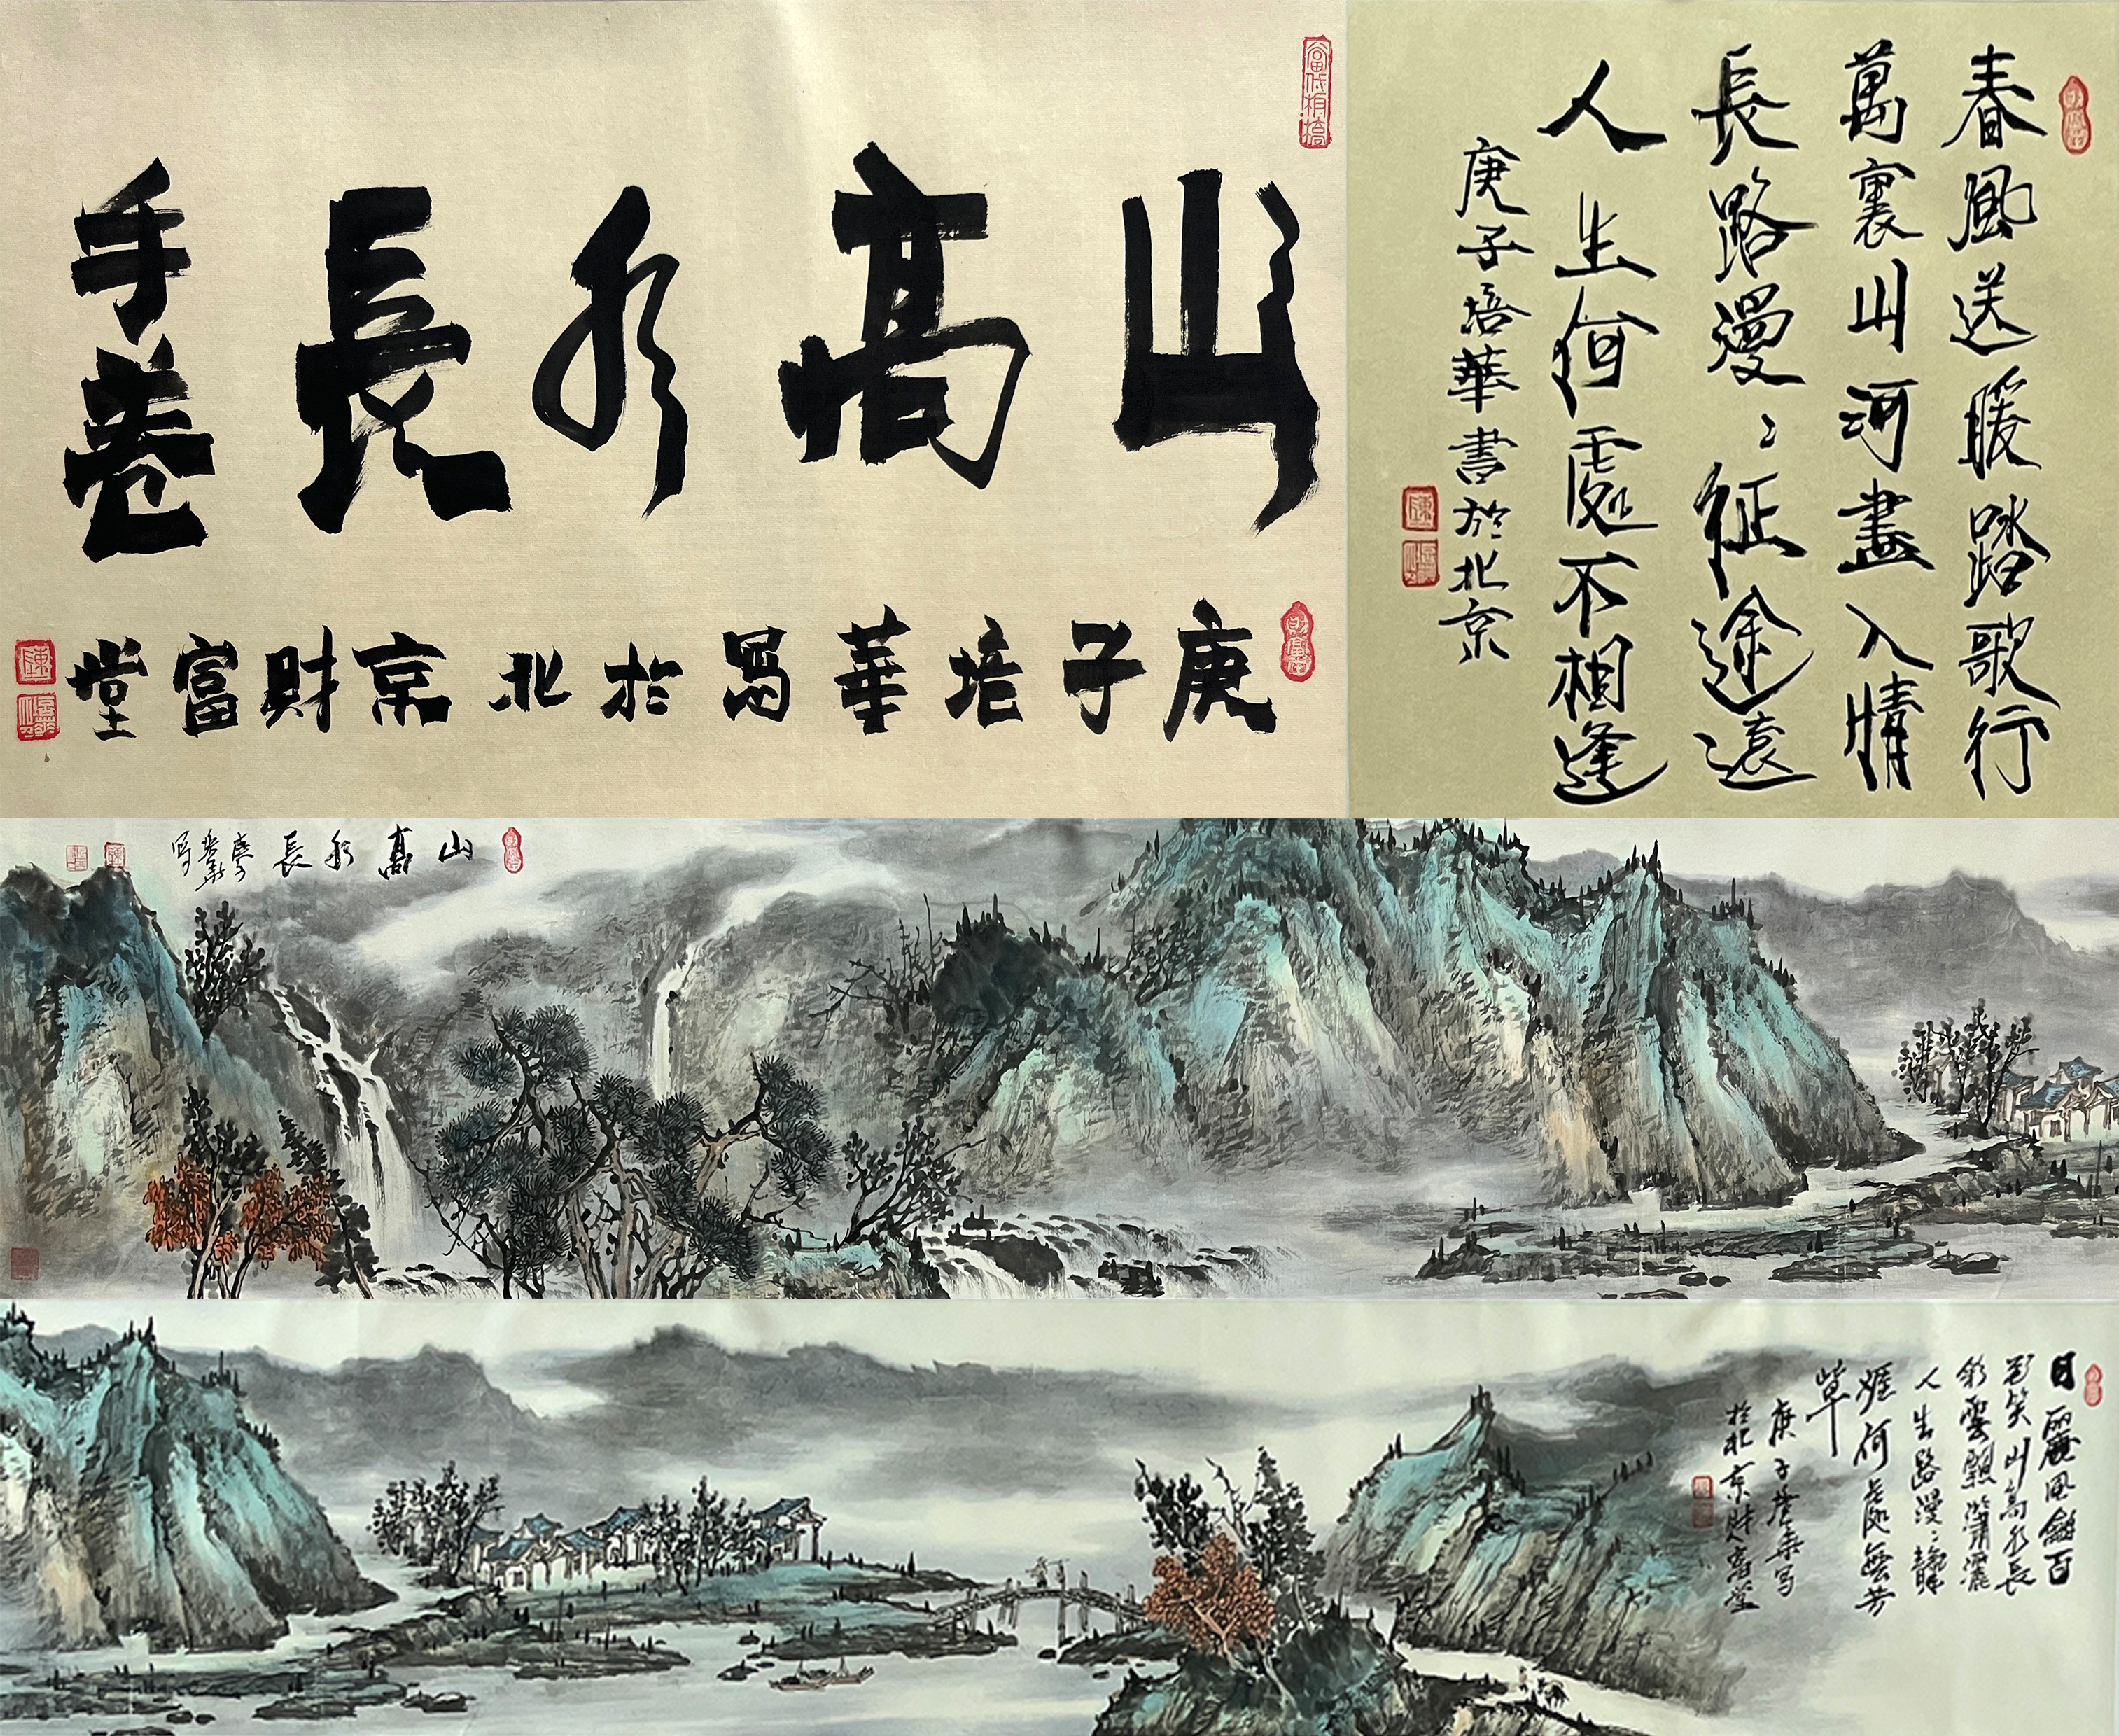 山高水長
手卷
庚子培華写於北京財富堂
春風送暖踏歌行
萬裏山河盡入情
長路漫〻征途遠
人生何處不相逢
庚子培華書於北京
山高水長
庚子
培華
写
日麗風龢百
花笑山高水長
彩雲飄瀟灑
人生路漫〻靝
涯何處無芳
草
庚子培華写
於北京財富堂